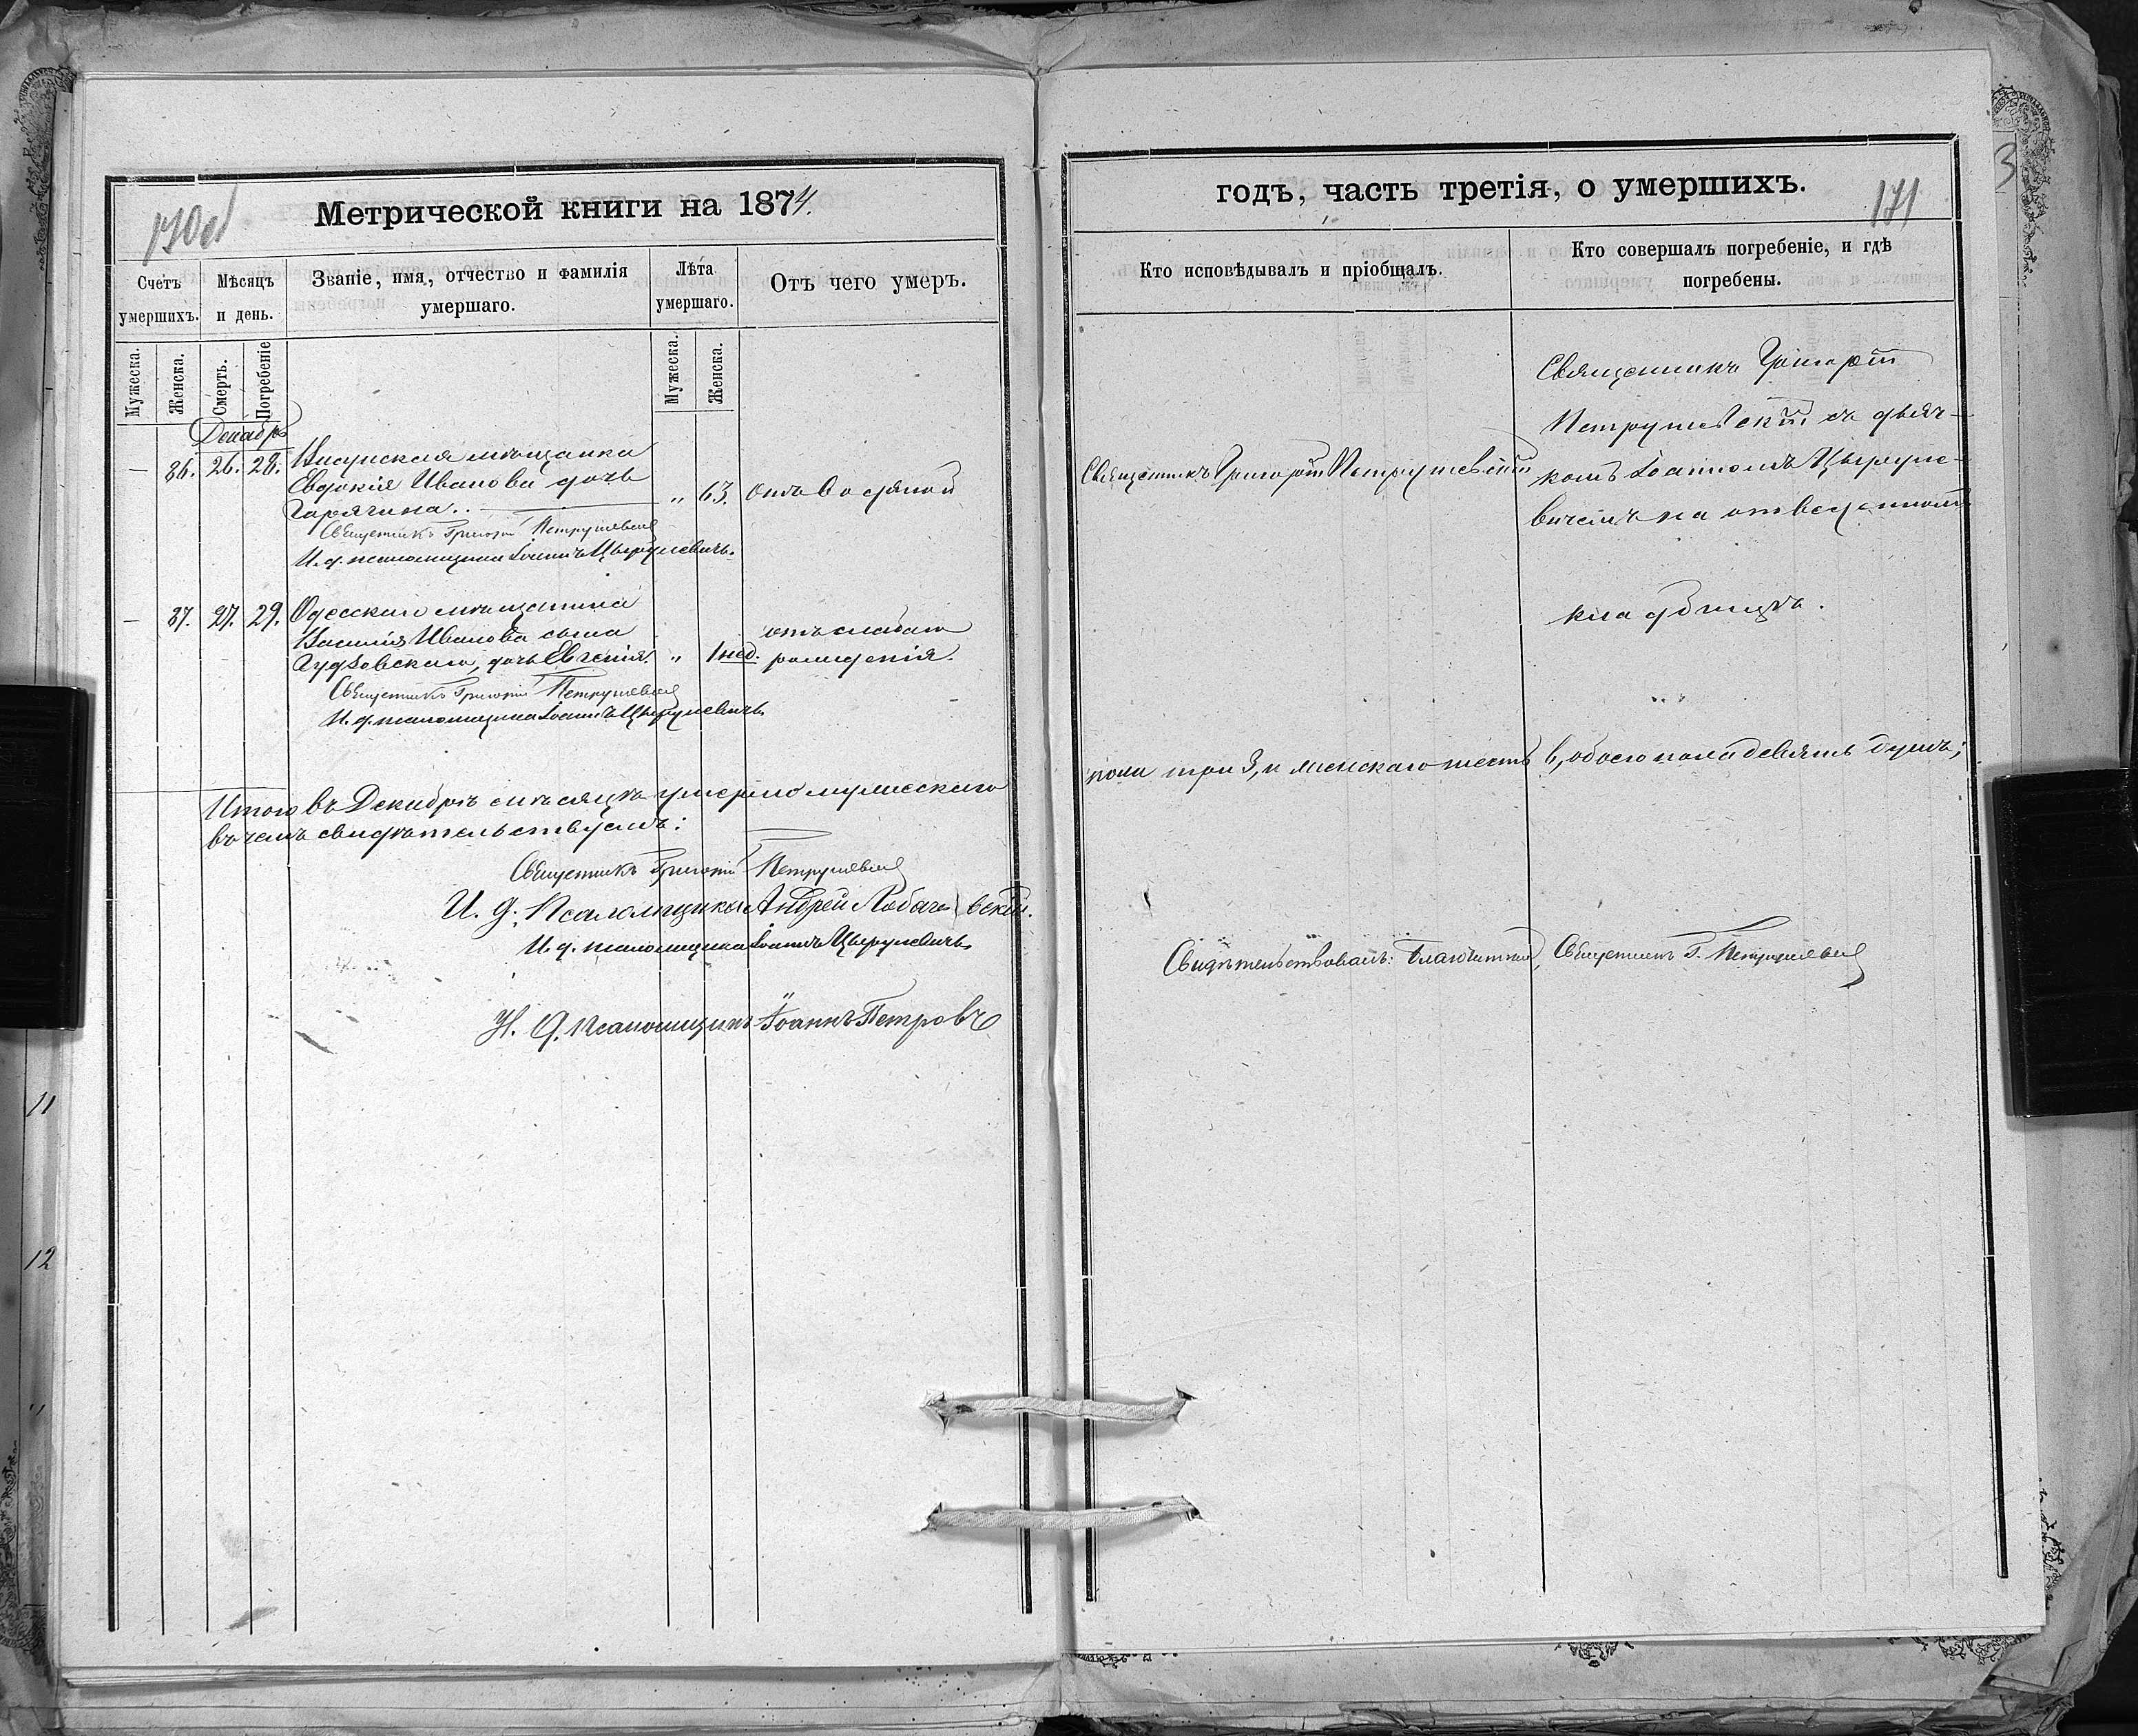 Метрической книги на 1874.
годъ, часть третія, о умершихъ.
171
Счетъ умершихъ.
Мѣсяцъ и день.
Званіе, имя, отчество и фамилія умершаго.
Лѣта умершаго.
Отъ чего умеръ.
Кто исповѣдывалъ и пріобщалъ.
Кто совершалъ погребеніе, и гдѣ погребены.
Мужеска.
Женска.
Смерть.
Погребеніе
Мужеска.
Женска.
Декабрь
— 86. 26. 28.
мѣщанка
Евдокія Иванова дочь
Горячина..
„ 63. отъ водяной
Священникъ Григорій Петрушевскій
И. д. псаломщика Іоаннъ Цырулевичъ.
Священникъ Григорій Петрушевскій
Священникъ Григорій
Петрушевскій съ дьяч-
комъ Іоанномъ Цыруле-
вичемъ на отведенномъ
кладбищѣ.
— 87. 27. 29.
Одесскаго мѣщанина
Василія Иванова сына
дочь Евгенія.
„ 1 нед.
отъ слабаго
рожденія.
Священникъ Григорій Петрушевскій
И. д. псаломщика Іоаннъ Цырулевичъ
Итого въ Декабрѣ мѣсяцѣ умерло мужескаго
пола три 3, и женскаго шесть 6, обоего пола девять душъ;
въ чемъ свидѣтельствуемъ:
Священникъ Григорій Петрушевскій
И. д. Псаломщика Андрей Лобачевскій.
И. д. псаломщика Іоаннъ Цырулевичъ
И. д. псаломщикъ Іоаннъ Петровъ
Свидѣтельствовалъ: Благочинный, Священникъ Г. Петрушевскій
3
11
12